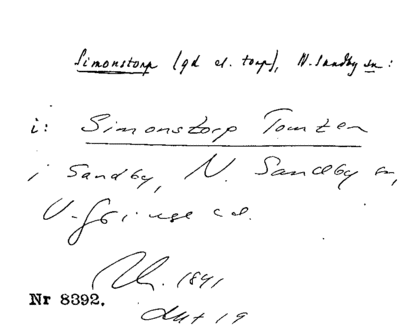 Simonstorp (gd el. torp), N. Sandby sn:
i: Simonstorp Tomten
i Sandby, N. Sandby sn,
V. Göinge hd.
1841
Nr 8392. Akt 19